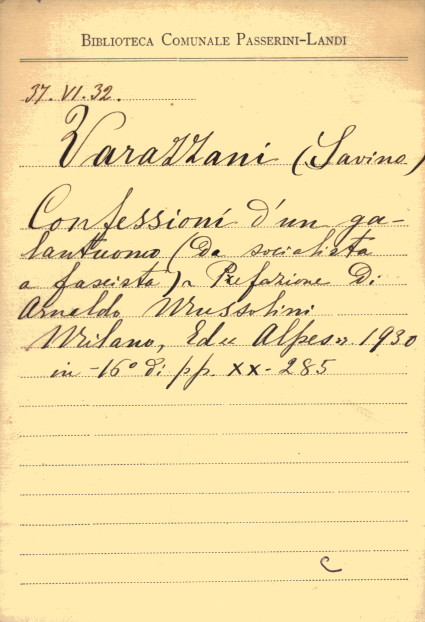 BIBLIOTECA COMUNALE PASSERINI-LANDI
37.VI.32.
Varazzani (Savino)
Confessioni d'un ga-
lantuomo (Da socialista
a fascista). Prefazione di
Arnaldo Mussolini
Milano, Ed. "Alpes" 1930
in-16° di pp. XX-285
C